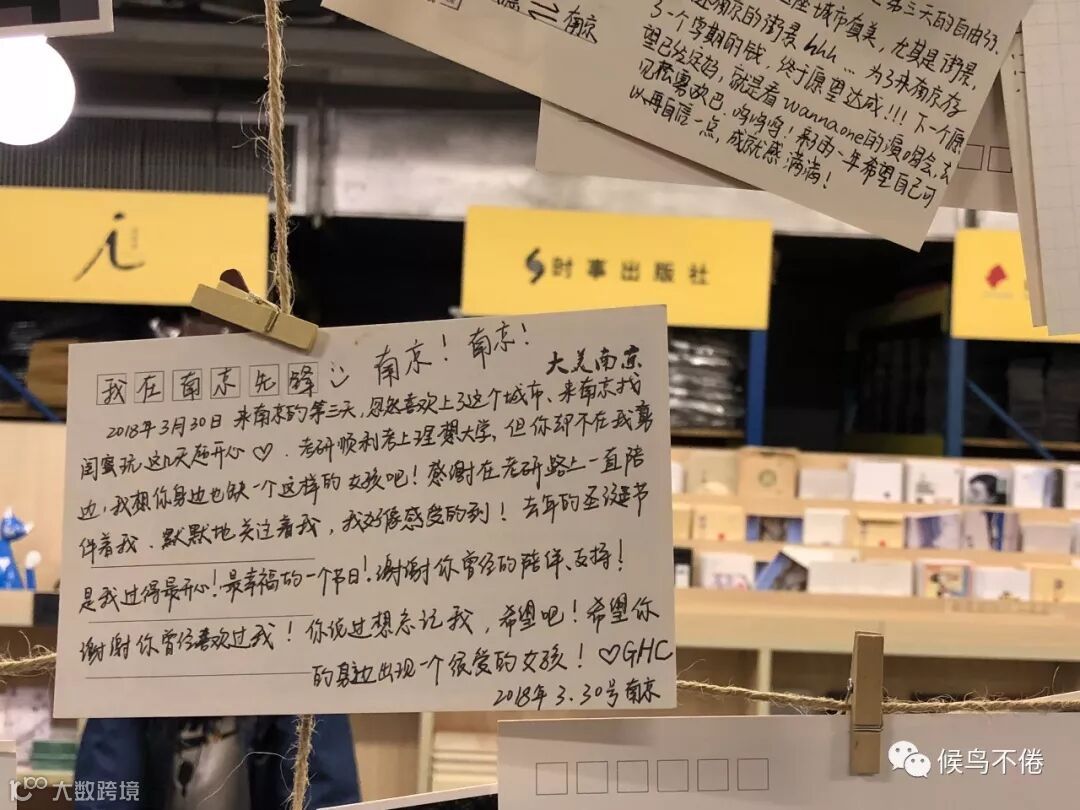 南京
第三天的自由行.
座城市真美,尤其是街景,
南京的街景 hhh... 为了来南京存
了一个学期的钱,终于愿望达成!!! 下一个愿
望已经径好,就是看wannaone的演唱会,去
见松万欢巴.呜呜呜! 新的一年希望自己可
以再自信一点,成就感满满!
时事出版社
我在南京先锋 南京! 南京!
大美南京
2018年3月30日 来南京的第三天,忽然喜欢上了这个城市、来南京找
闺蜜玩这几天超开心♡. 考研顺利考上理想大学,但你却不在我旁
边,我想你身边也缺一个这样的女孩吧! 感谢在考研路上一直陪
伴着我、默默地关注着我,我好像感受的到! 去年的圣诞节
是我过得最开心!最幸福的一个节日!谢谢你曾经的陪伴、支持!
谢谢你曾经喜欢过我! 你说过想忘记我,希望吧!希望你
的身边出现一个很爱的女孩! ♡GHC
2018年3.30号南京
候鸟不倦
大数跨境